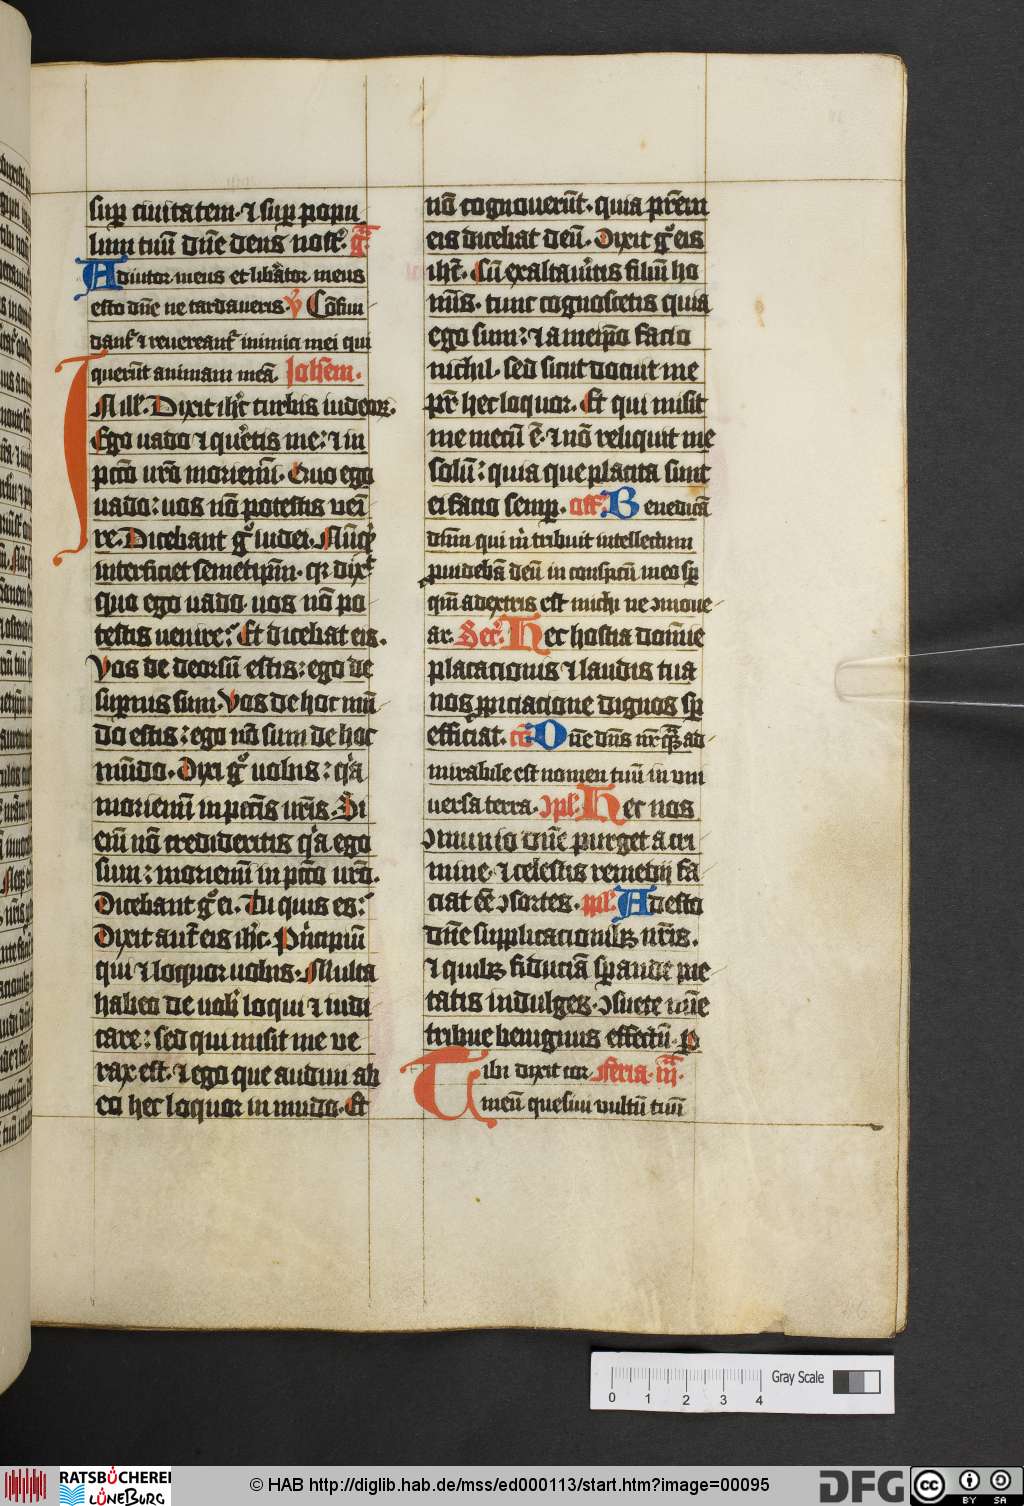 sup̱ ciuitatem · ⁊ sup̱ popu
lum tuū dn̄e deus nost᷑. gͣ
Adiutor meus et lib̄ator meus
esto dn̄e ne tardaueris · v̾ Cōfun
dant᷑ ⁊ reuereant᷑ inimici mei qui
querūt animam meā. Iohēm.
In ill̄. Dixit ih̄c turbis iudeoꝝ.
Ego uado ⁊ quētis me : ⁊ in
pctō ur̄o moriemī. Quo ego
uado : uos nō potestis veni
re. Dicebant gͦ iudei. Nūqͥd
interficiet semetip̄m. qꝛ dix᷑
quo ego uado uos nō po
testis uenire : Et dicebat eis.
Vos de deorsū estis : ego de
supernis sum. Vos de hoc mū
do estis : ego nō sum de hoc
mūdo. Dixi gͦ uobis : qͥa
moriemī in pctīs ur̄is. Si
em̄ nō credideritis qͥa ego
sum : moriemī in pctō ur̄o.
Dicebant gͦ ei. Tu quis es :
Dixit aut̄ eis ih̄c. Pͥncipiū
qui ⁊ loquor uobis. Multa
habeo de uob̄ loqui ⁊ iudi
care : sed qui misit me ve
rax est. ⁊ ego que audiui ab
eo hec loquor in mūdo. Et
nō cognouerūt. quia pr̄em
eis dicebat deū. Dixit gͦ eis
ih̄c. Cū exaltauitis filiū ho
mīs. tunc cognoscetis quia
ego sum : ⁊ a meip̄o facio
nichil. sed sicut docuit me
pr̄ hec loquor. Et qui misit
me mecū ē. ⁊ nō reliquit me
solū : quia que placita sunt
ei facio semp̱. off᷑. Benedicā
dn̄m qui m̄ tribuit intellectum
puidebā deū in conspectu meo sp̱
qm̄ a dextris est michi ne ꝯmoue
ar. Secͬ. Hec hostia domīe
placacionis ⁊ laudis tua
nos ꝓpiciacione dignos sp̱
efficiat. cō Dn̄e dn̄s nr̄ qͣm ad
mirabile est nomen tuū in vni
uersa terra. ꝯpl᷑. Hec nos
ꝯmunio dn̄e purget a cri
mine. ⁊ celestis remedij fa
ciat eē ꝯsortes. ppl᷑. Adesto
dn̄e supplicacionibꝫ nr̄is.
⁊ quibꝫ fiduciā sp̱ande pie
tatis indulges. ꝯsuete mīe
tribue benignus effectū. ꝑ
Tibi dixit cor Feria. iijͣ.
meū quesiui vultū tuū
0 1 2 3 4
Gray Scale
RATSBÜCHEREI
LÜNEBURG
© HAB http://diglib.hab.de/mss/ed000113/start.htm?image=00095
DFG
cc BY SA